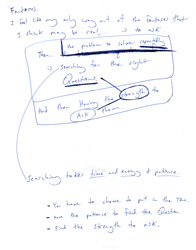 Fantasies.
I feel like my only way out of the fantasies that
I think may be real, is to ask.
Then the problem to solve repeatedly
is searching for the right
Questions
And then Having the strength to
Ask them
Searching takes time and energy & patience.
- You have to choose to put in the time
- have the patience to find the Question
- Find the strength to ask.